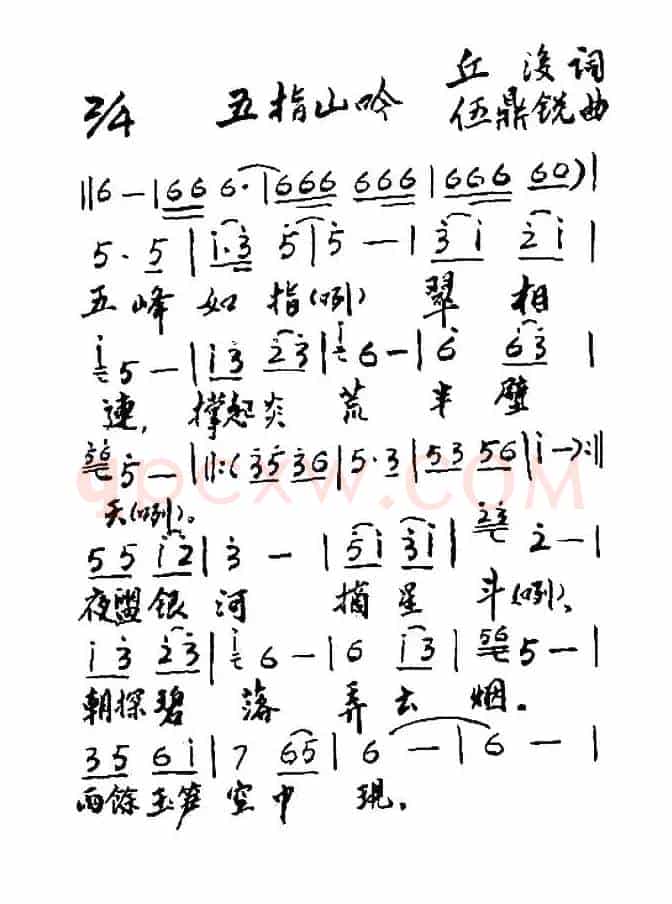 2/4 五指山吟 丘濬词
伍鼎锐曲
‖6 — | 6 6 6· | 6 6 6 6 6 6 | 6 6 6 6 0 ) |
5· 5 | i· 3 5 | 5 — | 3 i 2 i |
五峰如指(咧) 翠相
i 5 — | i 3 2 3 | i 6 — | 6 6 3 |
連,撐起炎荒半壁
56 5 — |‖:( 3 5 3 6 | 5· 3 | 5 3 5 6 | i — ):‖
天(咧)。
5 5 i 2 | 3 — | 5 i 3 i | 23 2 — |
夜盥银河摘星斗(咧),
i 3 2 3 | i 6 — | 6 i 3 | 56 5 — |
朝探碧落弄云烟。
3 5 6 i | 7 6 5 | 6 — | 6 — |
雨餘玉笋空中現,
qpcxw.COM